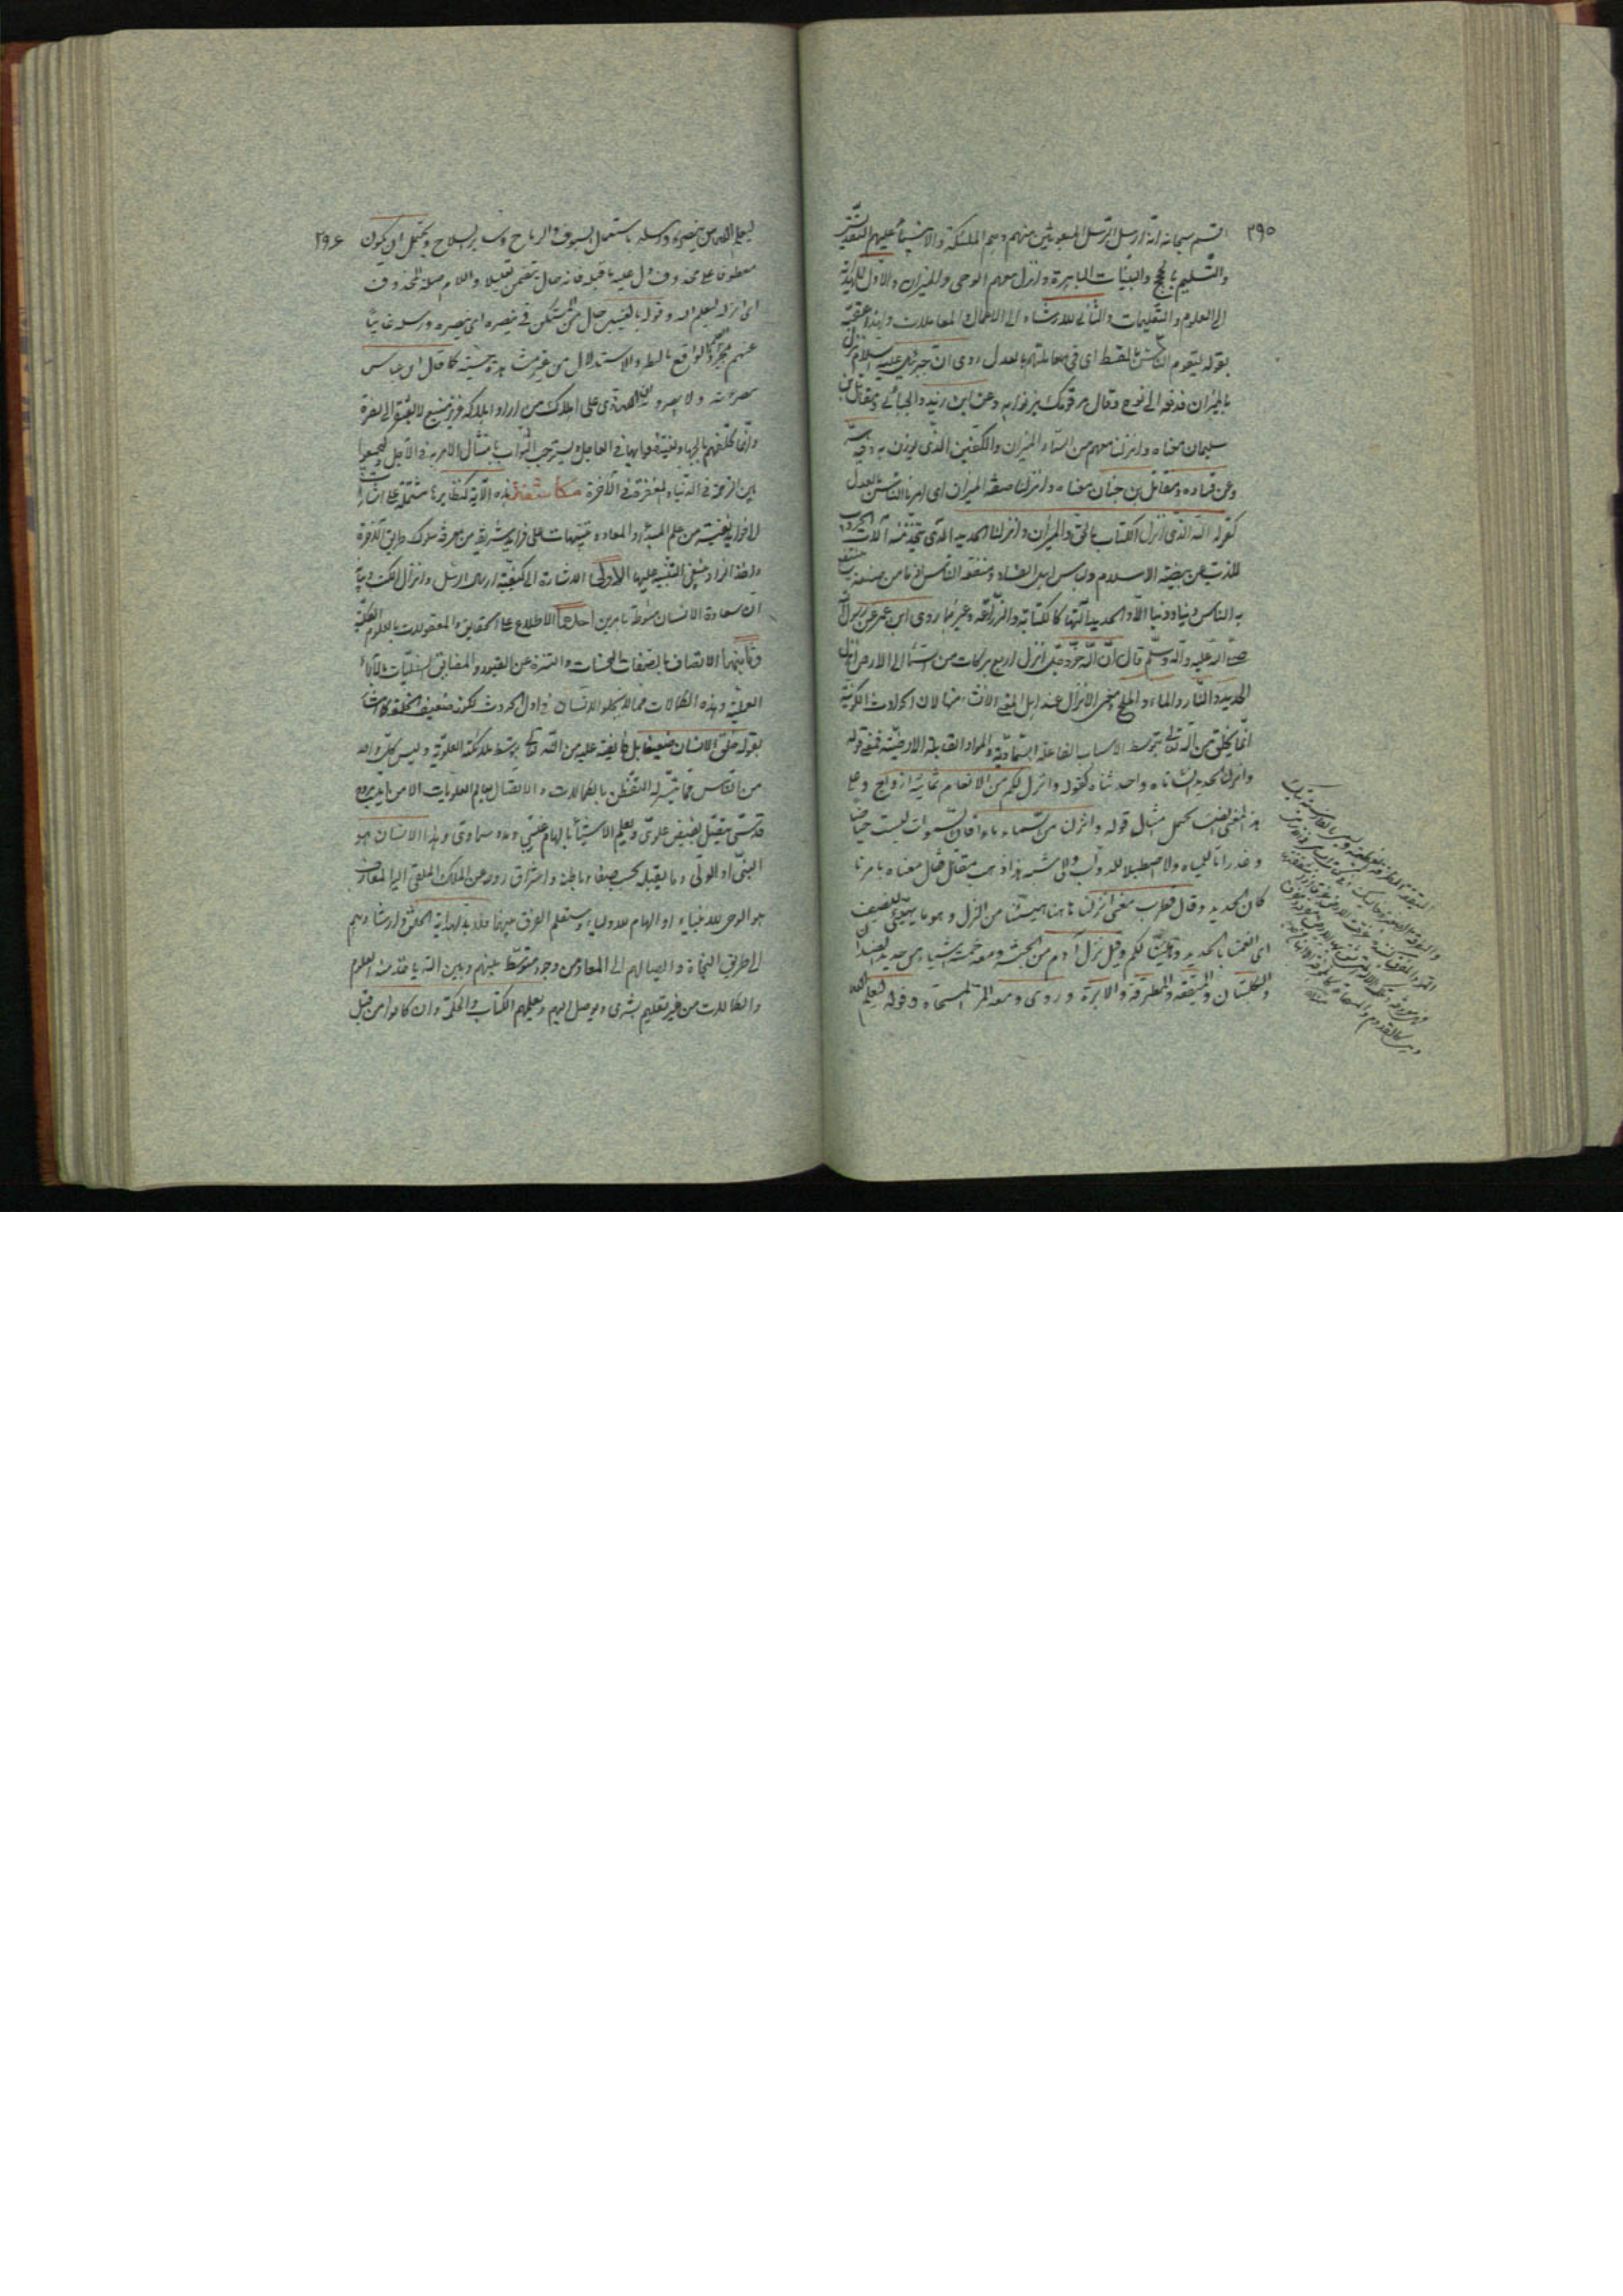 ٢٩٥
اقسم سبحانه انه ارسل الرسل المبعوثين منهم وهم الملئكة والانبياء عليهم التقديس
والتسليم بالحجج والبينات الباهرة وانزل معهم الوحى والميزان والاول للهداية
الى العلوم والتعليمات والثانى للارشاد الى الاعمال والمعاملات ولهذا عقبه
بقوله ليقوم الناس بالقسط اى فى معاملتهم بالعدل روى ان جبرئيل عليه السلام نزل
بالميزان فدفعه الى نوح وقال مر قومك يزنوا به وعن ابن زيد والجبائى ومقاتل بن
سليمان معناه وانزلنا معهم من السماء الميزان والكفتين الذى يوزن به وفيه
وعن قتاده ومقاتل بن حيان معناه وانزلنا صفة الميزان اى امرنا الناس بالعدل
كقوله الله الذى انزل الكتاب بالحق والميزان وانزلنا الحديد الذى تتخذ منه آلات الحروب
للذب عن بيضة الاسلام وباس اهل العناد ومنفعة الناس اذ ما من صنعة ينتفع
به الناس دينا ودنيا الا والحديد آلتها كالكتابة والزراعة وغيرهما روى ابن عمر عن رسول الله
صلى الله عليه وآله وسلم قال ان الله عز وجل انزل اربع بركات من السماء الى الارض انزل
الحديد والنار والماء والملح ومعنى الانزال عند اهل المعنى الانشاء منها لان الحوادث الكونية
انما يخلق من الله تعالى بتوسط الاسباب الفاعلة السماوية والمواد القابلة الارضية فمعنى قوله
وانزلنا الحديد انشاناه واحدثناه كقوله وانزل لكم من الانعام ثمانية ازواج وعلى
هذا المعنى ايضا يحمل مثل قوله وانزلنا من السماء ماء اذ السموات ليست حياضا
وغدرانا للمياه ولا اصطبلا للدواب والى شبه هذا ذهب مقاتل فقال معناه بامرنا
كان الحديد وقال قطرب معنى انزلنا ههنا هيئنا من النزل وهو ما يهيئ للضيف
اى انعمنا بالحديد وهيئنا لكم وقيل نزل آدم من الجنة ومعه خمسة اشياء من حديد السندان
والكلبتان والميقعة والمطرقة والابرة وروى ومعه المر والمسحاه وقوله ليعلم الله
٢٩٦
ليعلم الله من ينصره ورسله باستعمال السيوف والرماح وساير السلاح ويحتمل ان يكون
معطوفا على محذوف دل عليه ما قبله فانه حال يتضمن تعليلا واللام صلة لمحذوف
اى انزله ليعلم الله وقوله بالغيب حال من المستكن فى ينصره اى ينصره ورسله غائبا
عنهم الواقع بالنظر والاستدلال من غير مشاهدة حسية كما قال ابن عباس
ينصرونه ولا يبصرونه ان الله قوى على اهلاك من اراد اهلاكه عزيز منيع لا يفتقر الى نصرة
وانما كلفهم بالجهاد لينتفعوا بها فى العاجل ويستوجب الثواب بامتثال الامر به فى الآجل ليجمعوا
بين العزة فى الدنيا والمغفرة فى الآخرة مكاشفة هذه الآية كنظايرها مشتملة على اشارات
لافوايد نفيسة من علم المبدأ والمعاد وتنبيهات على فرايد شريفة من معرفة سلوك طريق الآخرة
واخذ الزاد ينبغى التنبيه عليها الاولى الاشارة الى كيفية ارسال الرسل وانزال الكتب وبيانه
ان سعادة الانسان منوطة بامرين احدهما الاطلاع على الحقايق والمعقولات بالعلوم العقلية
وثانيهما الاتصاف بالصفات الحسنات والتنزه عن القيود والمضايق السفليات بالآراء
العملية وهذه الكمالات مما لا يخلو الانسان فى اول الحدوث لكونه ضعيف الخلقة كما اشار
بقوله خلق الانسان ضعيفا بل فايضة عليه من الله تعالى بتوسط ملائكته العلوية وليس كل واحد
من الناس مما تيسر له التفطن بالكمالات والاتصال بعالم العلويات الا من ايد بروح
قدسى يقبل بفيض علوى ويعلم الاشياء بالهام غيبى ومدد سماوى وهذا الانسان هو
النبى او الولى وما يقبله بحسب صفاء باطنه واشراق روحه عن الملك الملقى اليه المعارف
هو الوحى للانبياء او الهام للاولياء وستعلم الفرق بينهما فلا بد لهداية الخلق وارشادهم
الى طريق النجاة وايصالهم الى المعارف من وجود متوسط بينهم وبين الله يأخذ منه العلوم
والكمالات من غير تعليم بشرى ويوصل اليهم ويعلمهم الكتاب والحكمة وان كانوا من قبل